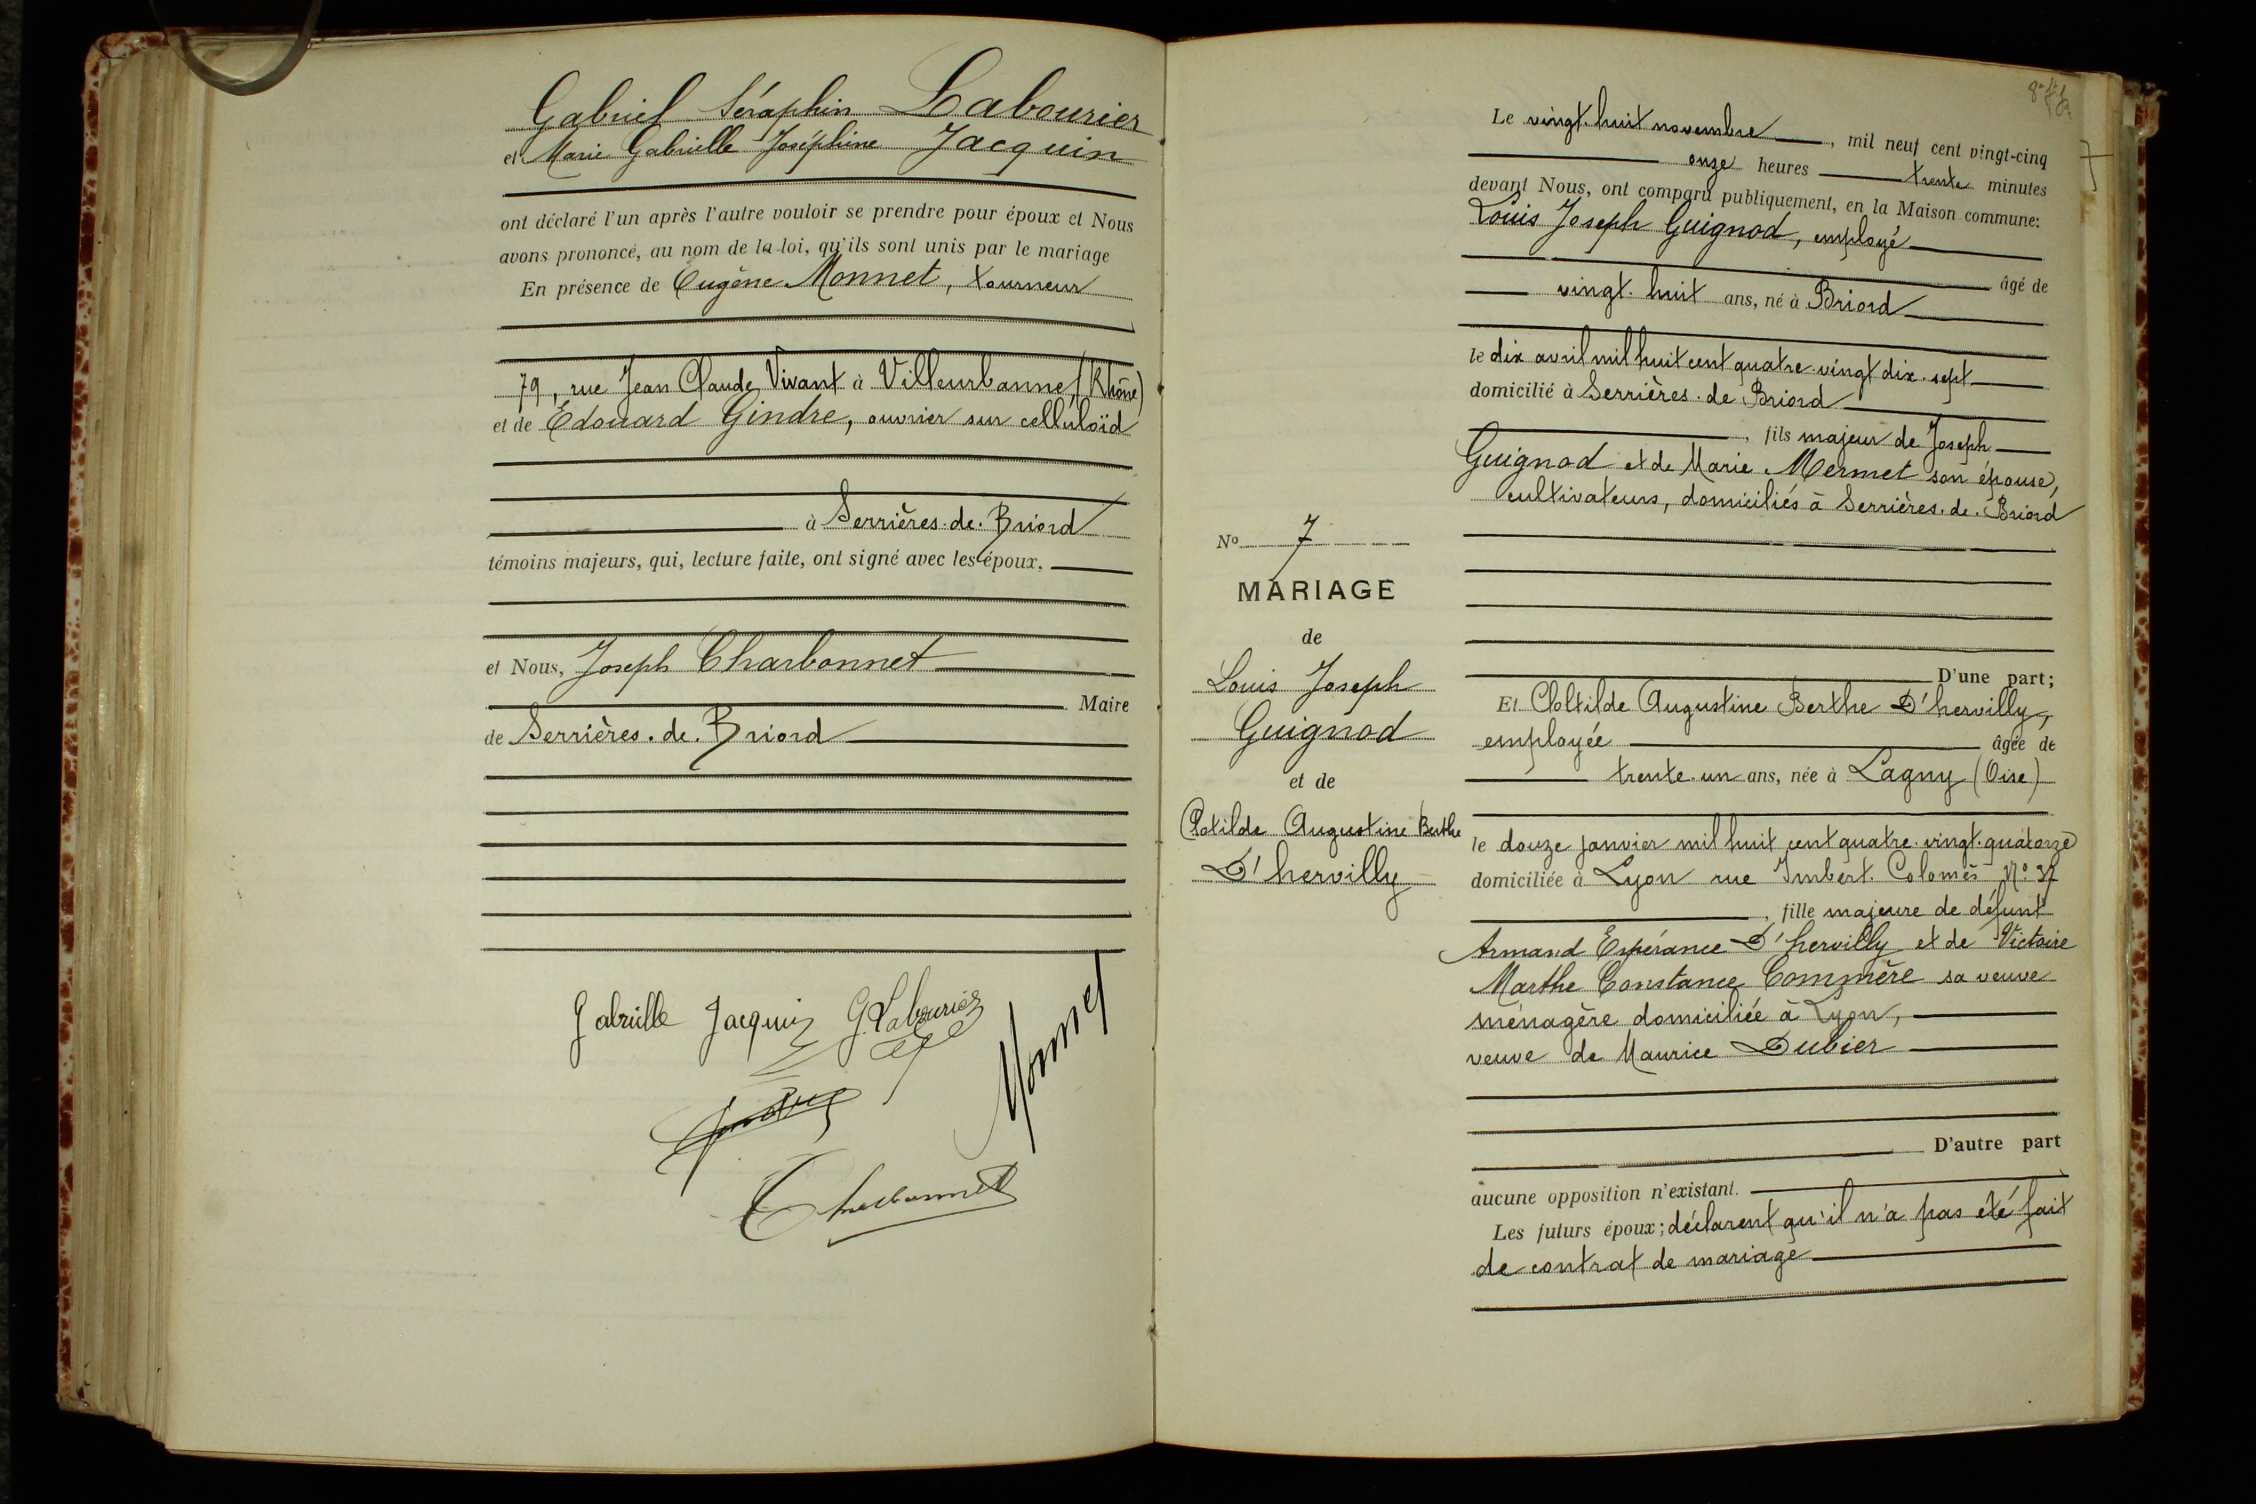 Gabriel Séraphin Labourier
et Marie Gabrielle Joséphine Jacquin
ont déclaré l'un après l'autre vouloir se prendre pour époux et Nous
avons prononcé, au nom de la loi, qu'ils sont unis par le mariage
En présence de Eugène Monnet, tourneur
79, rue Jean Claude Vivant à Villeurbanne (Rhône)
et de Edouard Gindre, ouvrier sur celluloïd
à Serrières-de-Briord
témoins majeurs, qui, lecture faite, ont signé avec les époux.
et Nous, Joseph Charbonnet
Maire
de Serrières-de-Briord
Gabrielle Jacquin G Labourier
Monnet
Gindre
Charbonnet
7
Le vingt-huit novembre, mil neuf cent vingt-cinq
onze heures trente minutes
devant Nous, ont comparu publiquement, en la Maison commune:
Louis Joseph Guignod, employé
âgé de
vingt-huit ans, né à Briord
le dix avril mil huit cent quatre-vingt dix-sept
domicilié à Serrières-de-Briord
, fils majeur de Joseph
Guignod et de Marie Mermet son épouse,
cultivateurs, domiciliés à Serrières-de-Briord
D'une part;
No 7
MARIAGE
de
Louis Joseph
Guignod
et de
Clotilde Augustine Berthe
D'hervilly
Et Cloltilde Augustine Berthe D'hervilly,
employée âgée de
trente-un ans, née à Lagny (Oise)
le douze janvier mil huit cent quatre-vingt-quatorze
domiciliée à Lyon rue Imbert-Colomès No 37
, fille majeure de défunt
Armand Espérance D'hervilly et de Victoire
Marthe Constance Commère sa veuve
ménagère domiciliée à Lyon,
veuve de Maurice Dubier
D'autre part
aucune opposition n'existant.
Les futurs époux; déclarent qu'il n'a pas été fait
de contrat de mariage